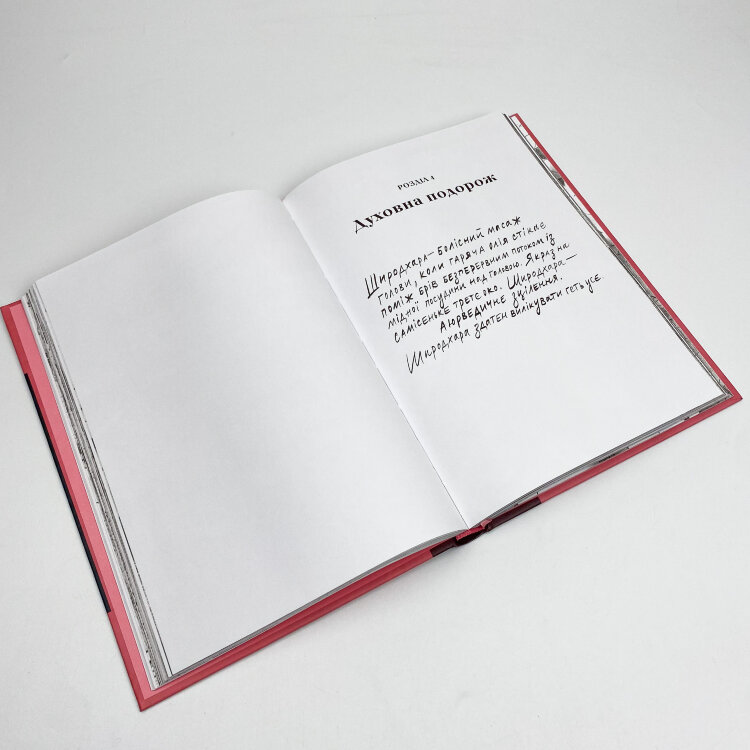 РОЗДІЛ 4
Духовна подорож
Широдхара – болісний масаж
голови, коли гаряча олія стікає
поміж брів безперервним потоком із
мідної посудини над головою. Якраз на
самісеньке третє око. Широдхара –
Аюрведичне зцілення.
Широдхара здатен вилікувати геть усе.